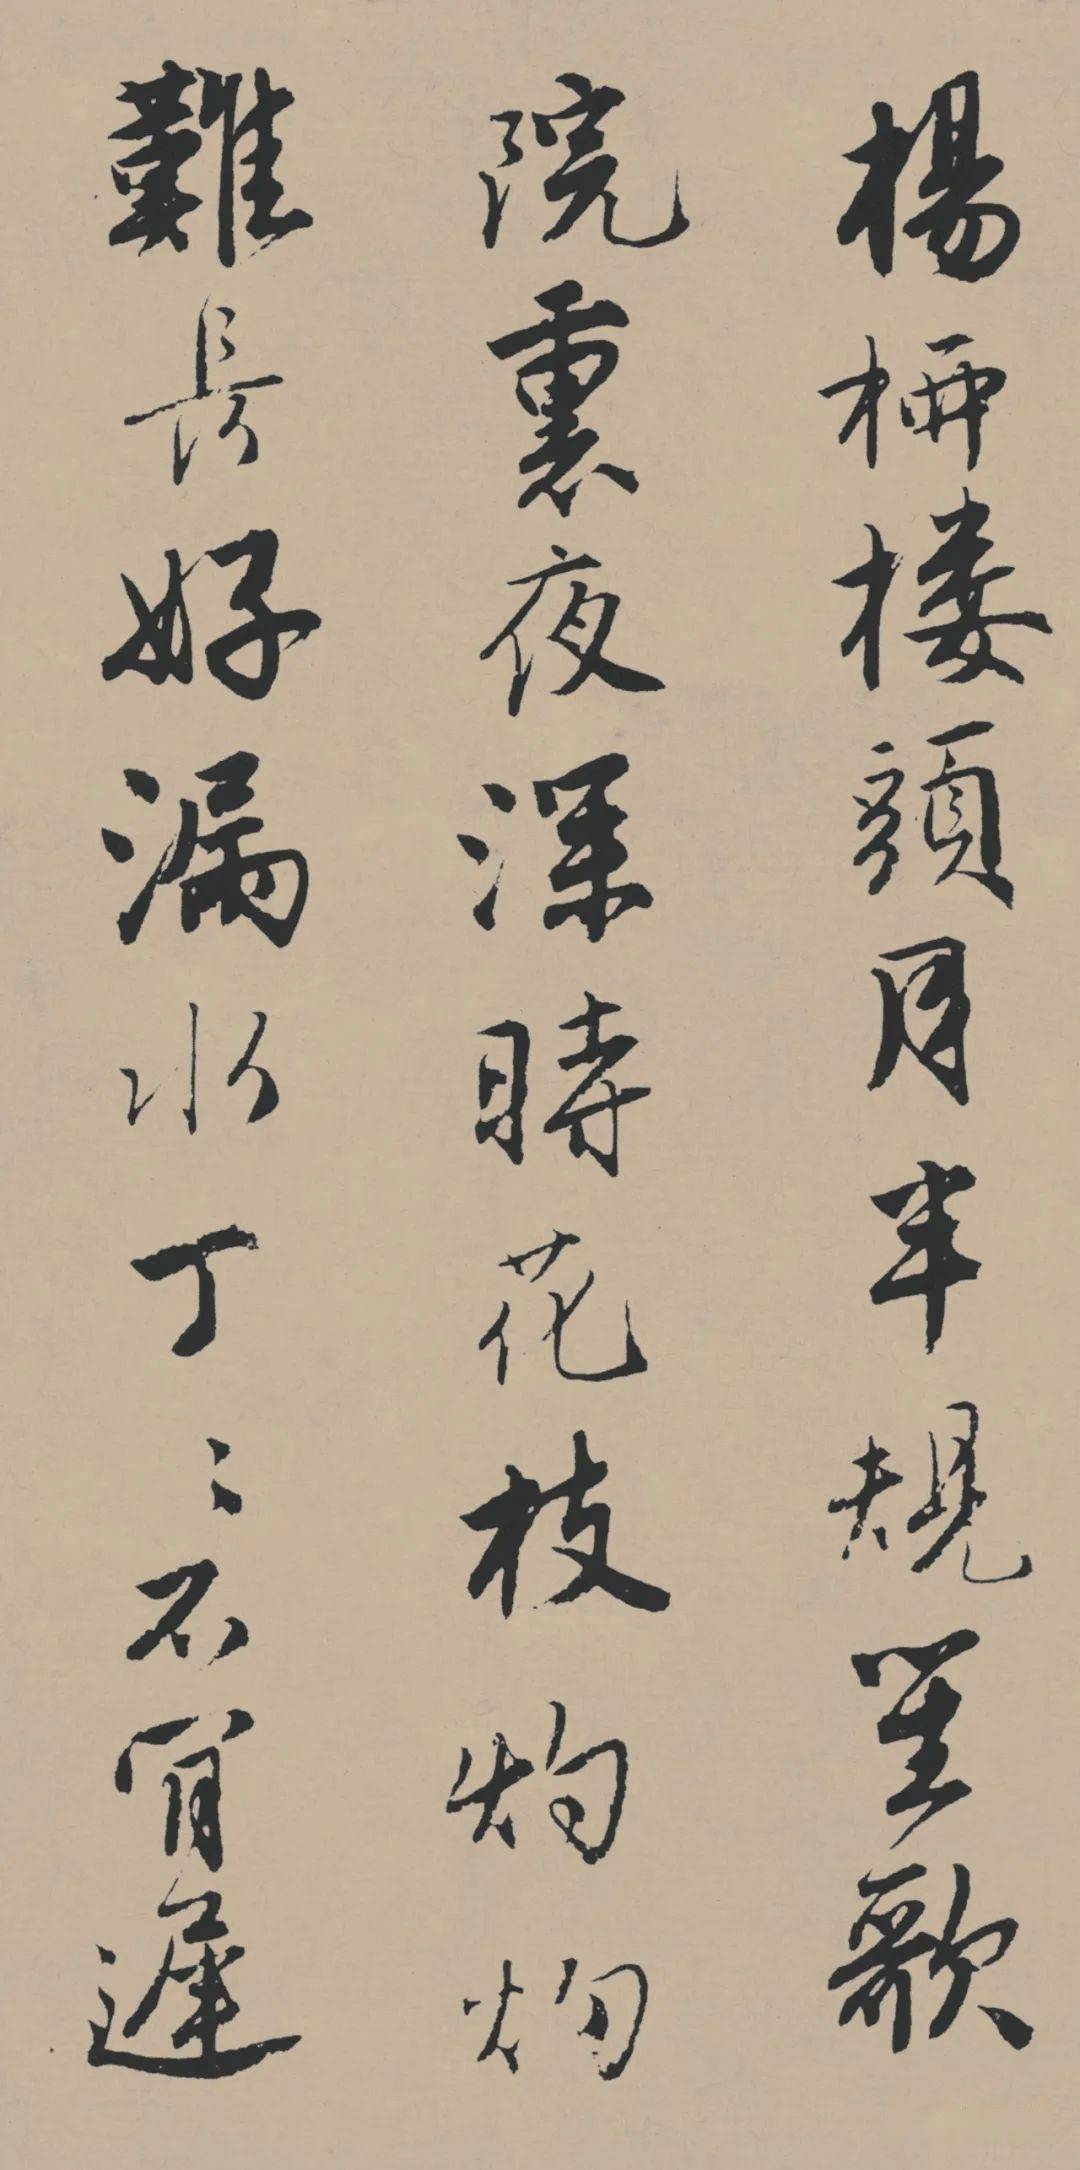 楊柳楼頭月半規笙歌
院裏夜深時花枝灼灼
難長好漏水丁〻不肯遲